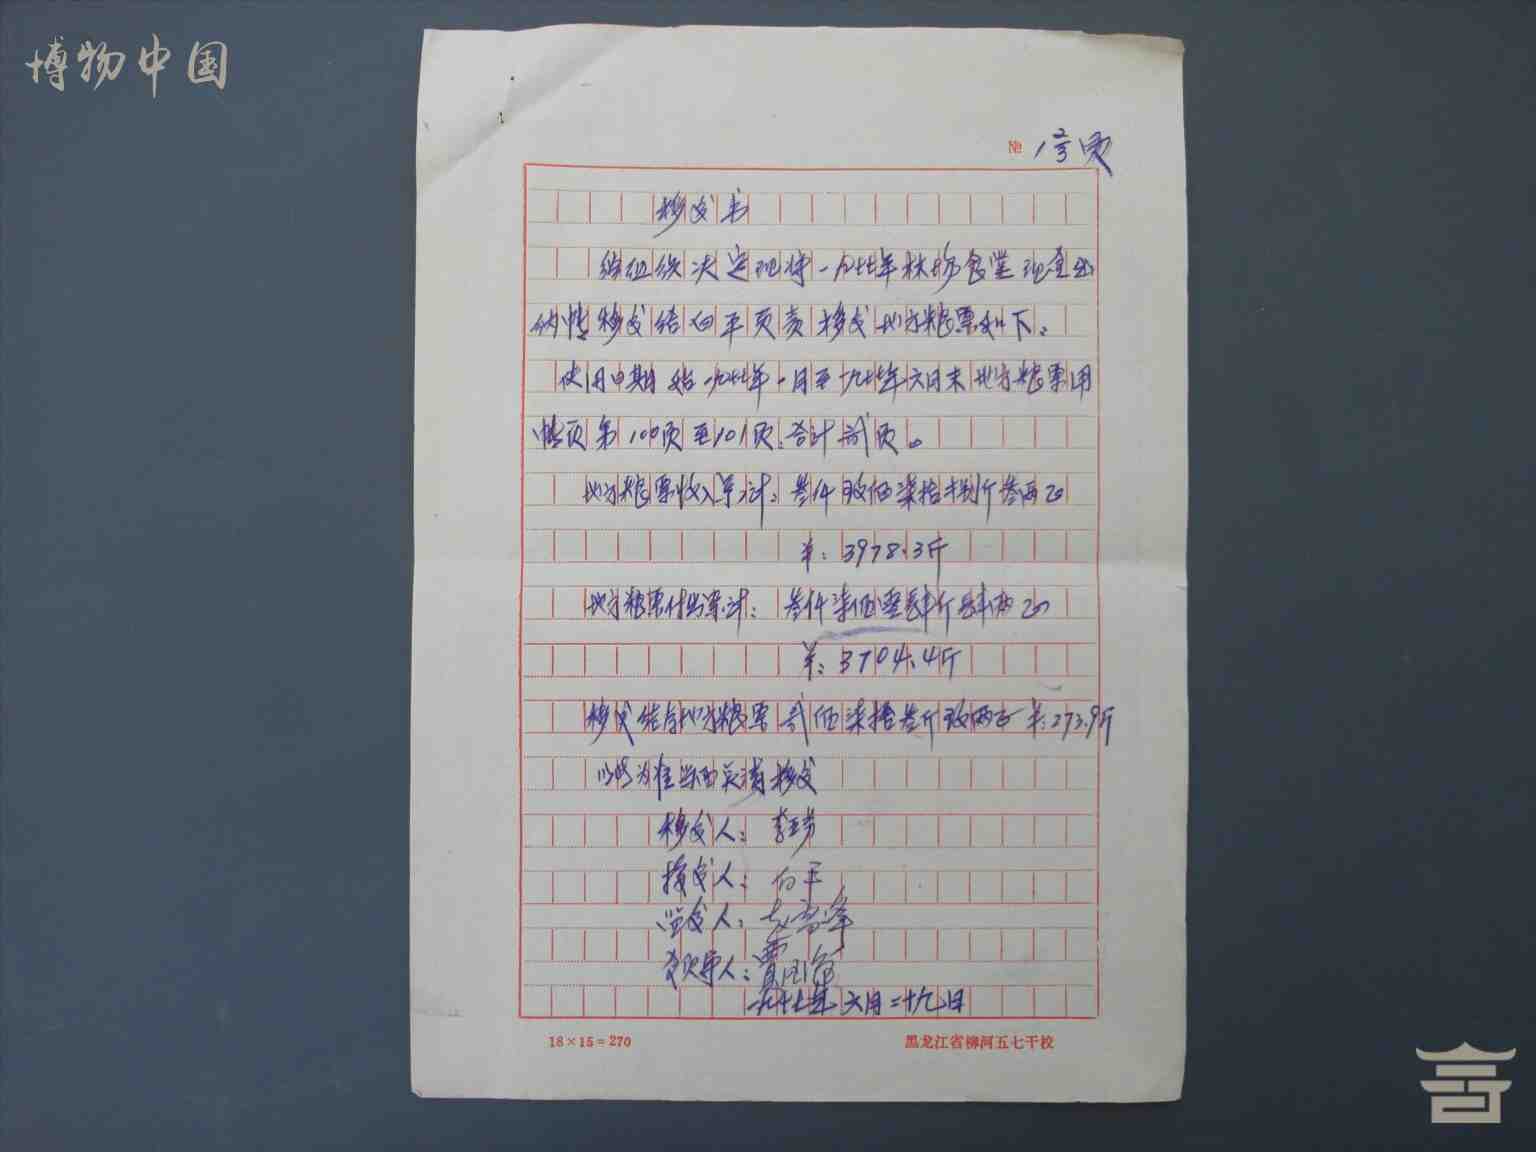 博物中国
№ 1号页
移交书
经组织决定现将一九七七年林场食堂现金出
纳帐移交给向平页责移交地方粮票如下:
使用日期始一九七七年一月至一九七七年六月末地方粮票用
帐页第100页至101页,合计贰页。
地方粮票收入累计:叁仟玖佰柒拾捌斤叁两正
¥:3978.3斤
地方粮票付出累计:叁仟柒佰零肆斤肆两正
¥:3704.4斤
移交结存地方粮票贰佰柒拾叁斤玖两正¥:273.9斤
以帐为准 移交
移交人:李亚芳
接交人:向平
监交人:
领导人:贾国
一九七七年六月二十九日
18×15=270
黑龙江省柳河五七干校